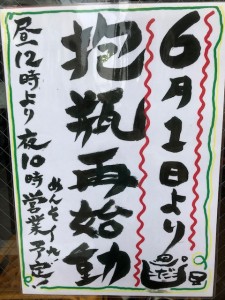 6月1日より
抱瓶再始動
昼12時より夜10時営業予定!
めんそーれ